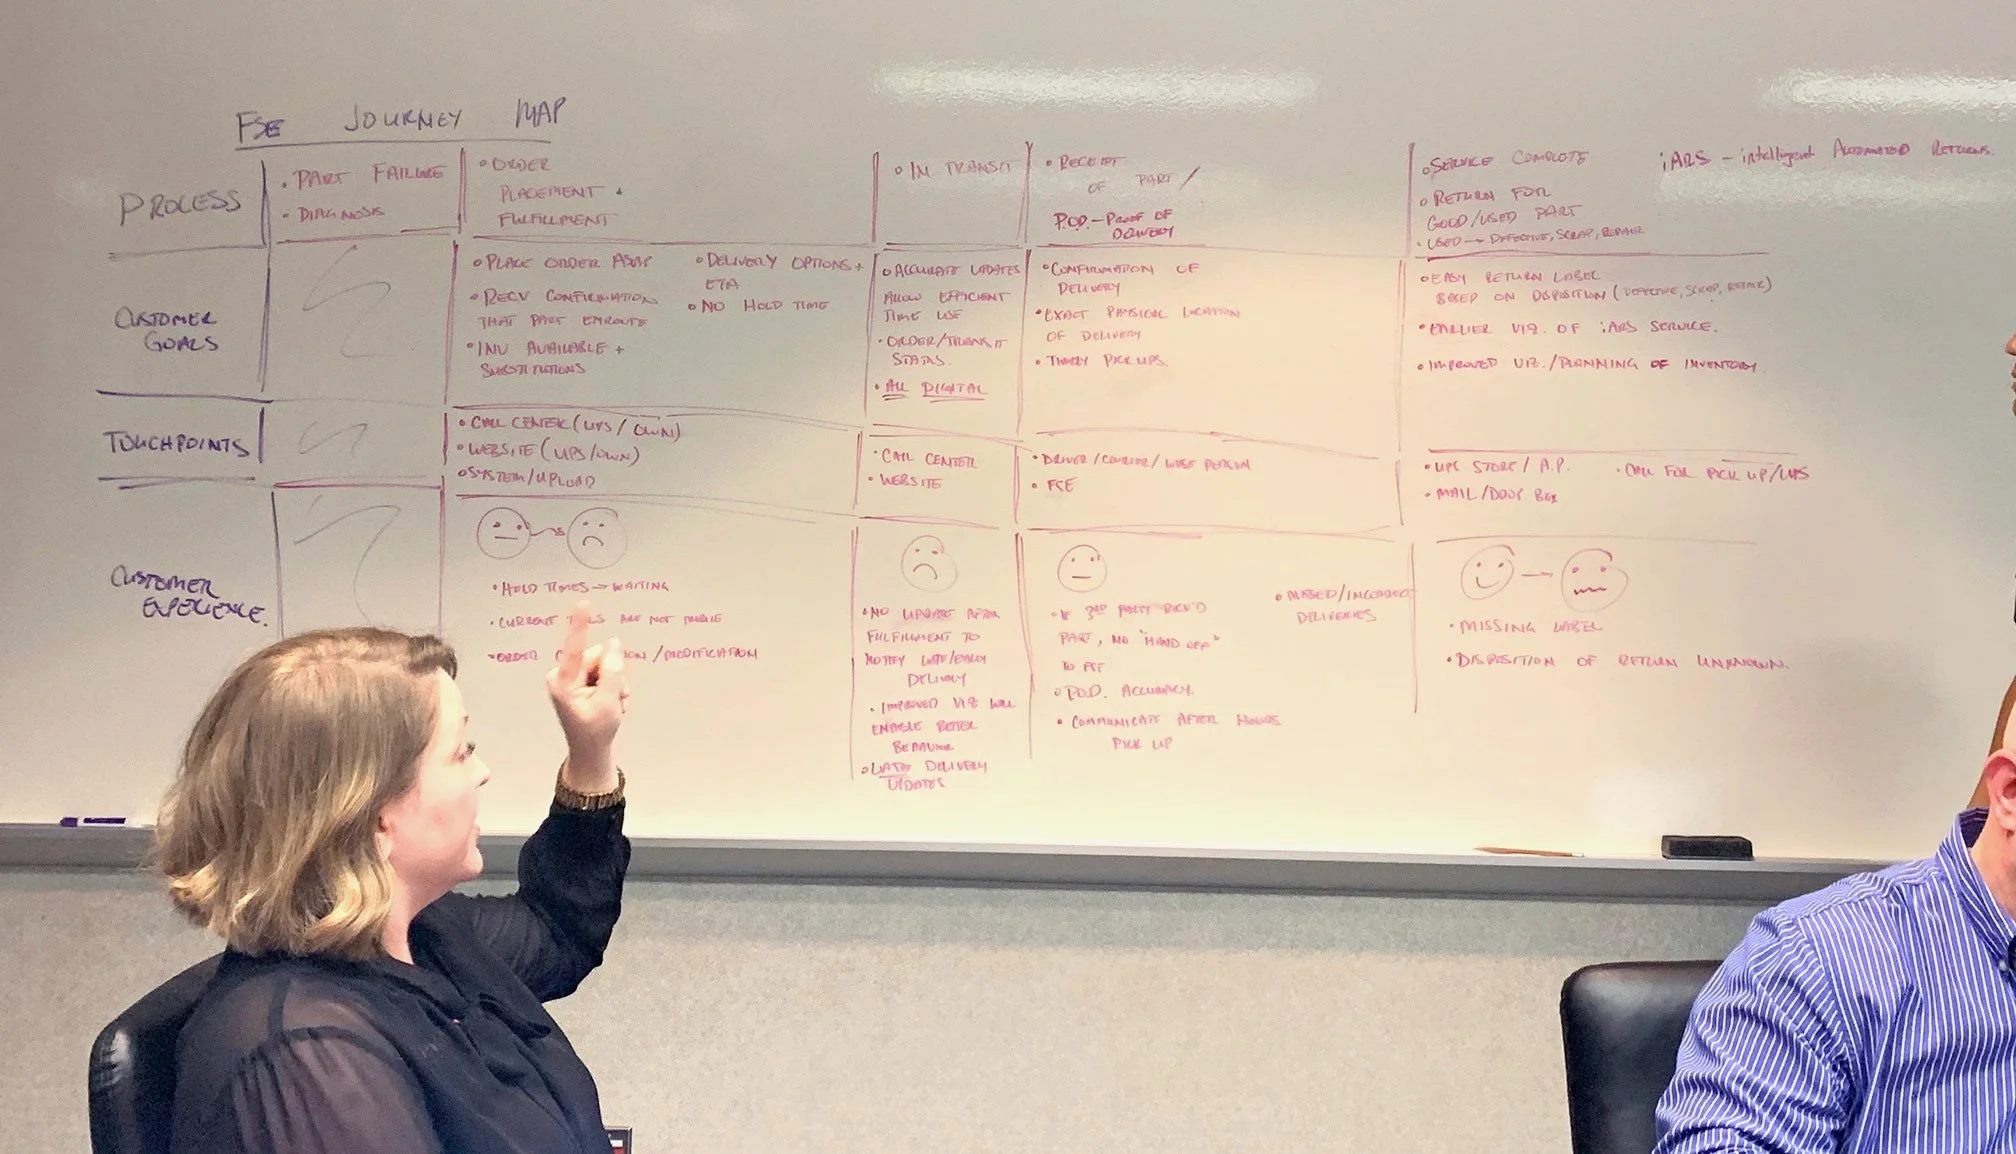 FSE JOURNEY MAP
PROCESS
• PART FAILURE
• DIAGNOSIS
• ORDER
PLACEMENT +
FULFILLMENT
• IN TRANSIT
• RECEIPT
OF PART /
P.O.D. - PROOF OF
DELIVERY
• SERVICE COMPLETE
• RETURN FOR
GOOD/USED PART
• USED → DEFECTIVE, SCRAP, REPAIR
iARS - intelligent AUTOMATED RETURNS.
CUSTOMER
GOALS
• PLACE ORDER ASAP
• RECV CONFIRMATION
THAT PART ENROUTE
• INV AVAILABLE +
SUBSTITUTIONS
• DELIVERY OPTIONS +
ETA
• NO HOLD TIME
• ACCURATE UPDATES
ALLOW EFFICIENT
TIME USE
• ORDER/TRANSIT
STATUS.
• ALL DIGITAL
• CONFIRMATION OF
DELIVERY
• EXACT PHYSICAL LOCATION
OF DELIVERY
• TIMELY PICK UPS.
• EASY RETURN LABEL
BASED ON DISPOSITION (DEFECTIVE, SCRAP, REPAIR)
• EARLIER VIZ. OF iARS SERVICE.
• IMPROVED VIZ./PLANNING OF INVENTORY.
TOUCHPOINTS
• CALL CENTER (UPS/OWN)
• WEBSITE (UPS/OWN)
• SYSTEM/UPLOAD
• CALL CENTER
• WEBSITE
• DRIVER/COURIER/WHSE PERSON
• FSE
• UPS STORE/A.P.
• MAIL/DROP BOX
• CALL FOR PICK UP/UPS
CUSTOMER
EXPERIENCE.
• HOLD TIMES → WAITING
• CURRENT ARE NOT MOBILE
• ORDER /MODIFICATION
• NO UPDATE AFTER
FULFILLMENT TO
NOTIFY LATE/EARLY
DELIVERY
• IMPROVED VIZ WILL
ENABLE BETTER
BEHAVIOR
• LATE DELIVERY
UPDATES
• IF 3RD PARTY RECV'D
PART, NO "HAND OFF"
TO FSE
• P.O.D. ACCURACY.
• COMMUNICATE AFTER HOURS
PICK UP
• MISSED/INCORRECT
DELIVERIES
• MISSING LABEL
• DISPOSITION OF RETURN UNKNOWN.